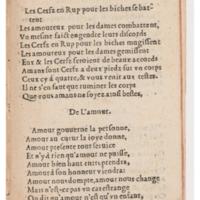 Les Cerfs en Rup pour les biches se bat-
tent
Les amoureux pour les dames combattent,
Vn mesme faict engendre leurs discords
Les Cerfs en Rup pour les biches mugissent
Les amoureux pour les dames gemissent
Eux & les Cerfs feroient de beaux accords
Amans sont Cerfs a deux pieds sus vn corps
Ceux cy a quatre, & vous venir aux testes
Il ne s'en faut que ruminer les corps
Que vous amans ne soyez ainsi bestes,
De L'amour.
Amour gouuerne la personne,
Amour au cœur la ioye donne,
Amour presente tout seruice
Et n'y a rien qu'amour ne puisse,
Amour bien hault entreprendra,
Amour à son honneur viendra:
Amour nous dompte, amour nous change
Mais n'est-ce pas cas estrange
On dit qu'amour n'est qu'vn enfant,